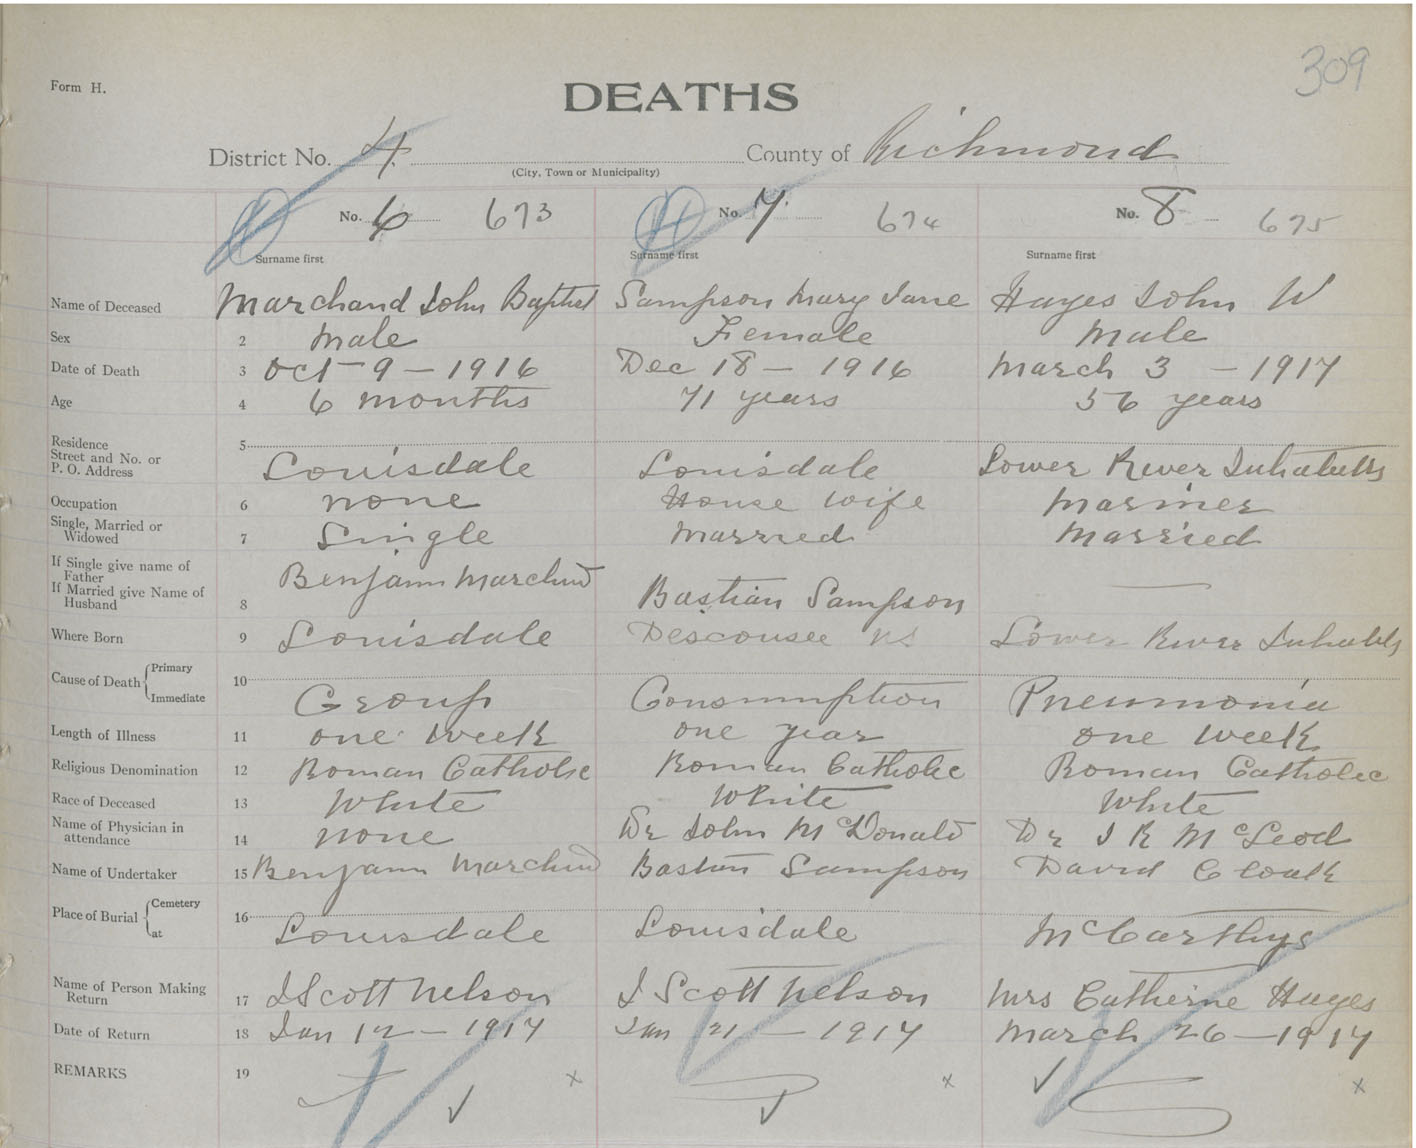 309
Form H.
DEATHS
District No. 4. County of Richmond
(City, Town or Municipality)
No. 6 673 No. 7. 674 No. 8 675
Surname first Surname first Surname first
Name of Deceased Marchand John Baptist Sampson Mary Jane Hayes John W
Sex 2 Male Female Male
Date of Death 3 Oct 9 - 1916 Dec 18 - 1916 March 3 - 1917
Age 4 6 months 71 years 56 years
Residence
Street and No. or
P. O. Address 5 Louisdale Louisdale Lower River Inhabitts
Occupation 6 none House wife Mariner
Single, Married or
Widowed 7 Single Married Married
If Single give name of
Father Benjamn Marchnd
If Married give Name of
Husband 8 Bastian Sampson —
Where Born 9 Louisdale Descousee NS Lower River Inhabts
Cause of Death { Primary
Immediate 10 Group Consumption Pneumonia
Length of Illness 11 one week one year one week
Religious Denomination 12 Roman Catholic Roman Catholic Roman Catholic
Race of Deceased 13 White White White
Name of Physician in
attendance 14 none Dr John McDonald Dr J R McLeod
Name of Undertaker 15 Benjamn Marchnd Bastian Sampson David Cloak
Place of Burial { Cemetery
at 16 Louisdale Louisdale McCarthys
Name of Person Making
Return 17 J Scott Nelson J Scott Nelson Mrs Catherine Hayes
Date of Return 18 Jan 12 - 1917 Jan 21 - 1917 March 26 - 1917
REMARKS 19